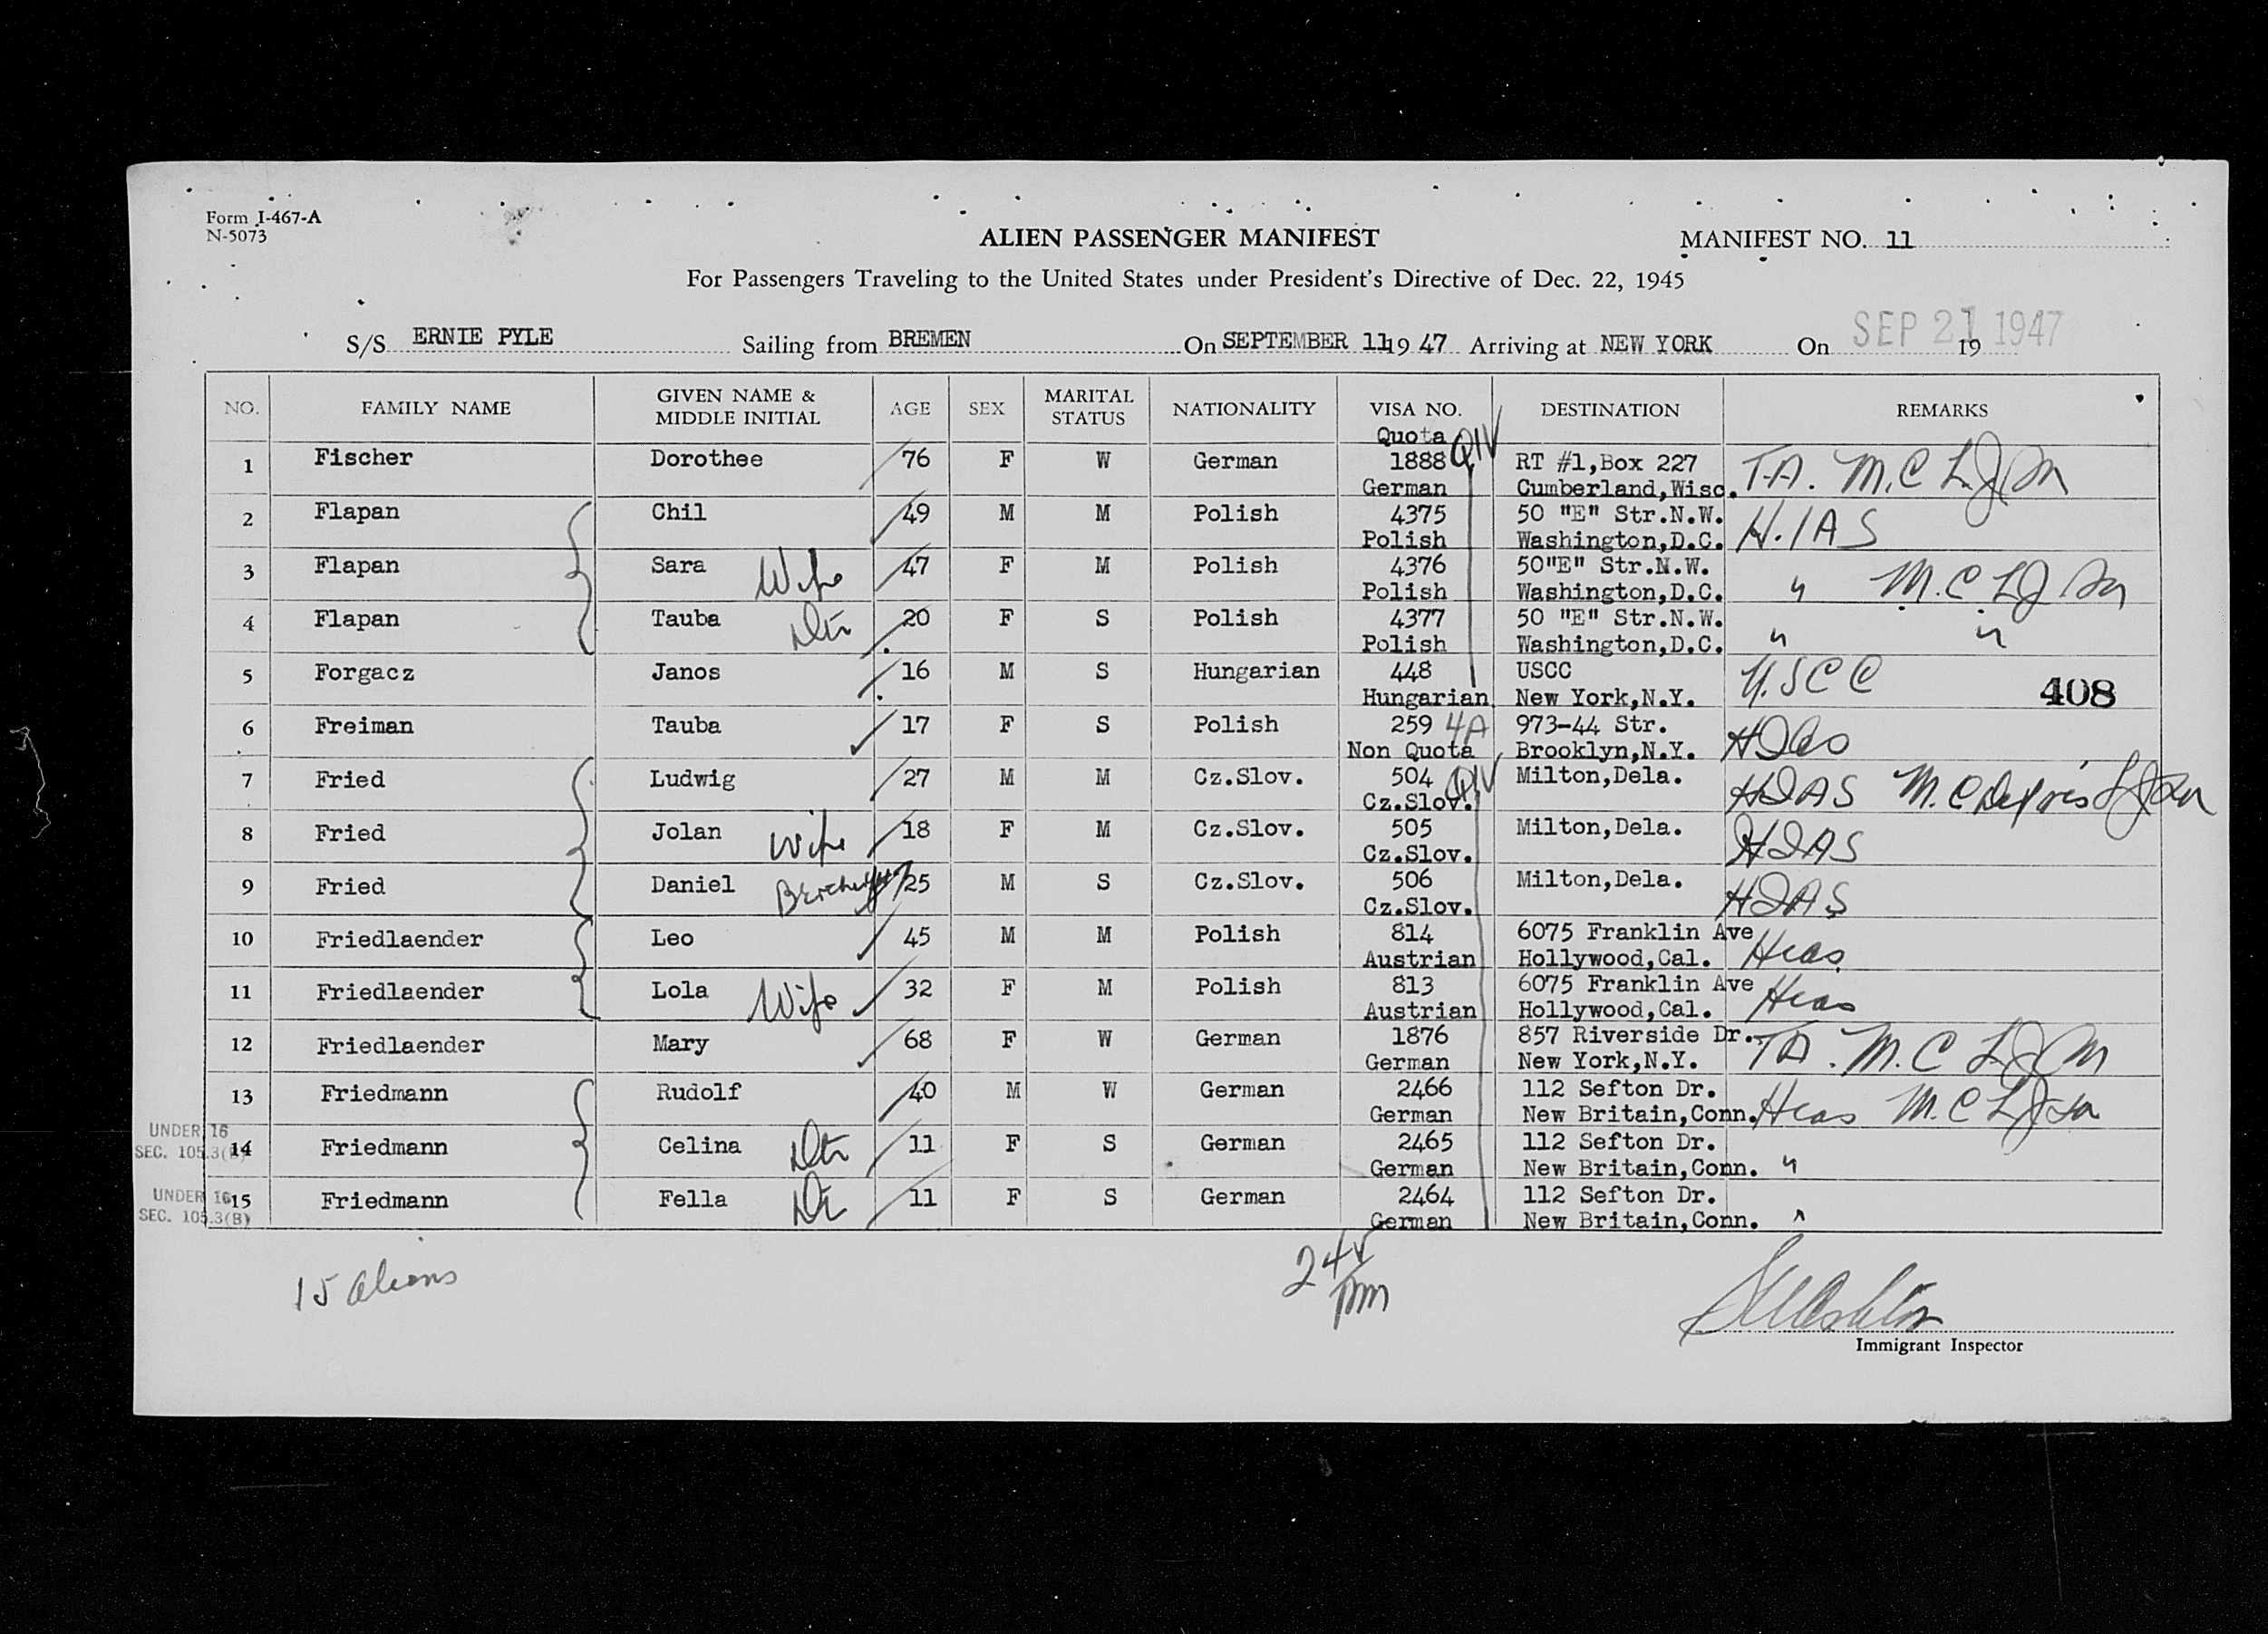 Form I-467-A
N-5073
ALIEN PASSENGER MANIFEST
MANIFEST NO. 11
For Passengers Traveling to the United States under President's Directive of Dec. 22, 1945
S/S ERNIE PYLE Sailing from BREMEN On SEPTEMBER 11 19 47 Arriving at NEW YORK On SEP 21 1947 19
NO. FAMILY NAME GIVEN NAME & MIDDLE INITIAL AGE SEX MARITAL STATUS NATIONALITY VISA NO. DESTINATION REMARKS
Quota QIV
1 Fischer Dorothee 76 F W German 1888 RT #1,Box 227 T.A. M.C
German Cumberland,Wisc.
2 Flapan Chil 49 M M Polish 4375 50 "E" Str.N.W. H.IAS
Polish Washington,D.C.
3 Flapan Sara Wife 47 F M Polish 4376 50"E" Str.N.W. " M.C
Polish Washington,D.C.
4 Flapan Tauba Dtr 20 F S Polish 4377 50 "E" Str.N.W. " "
Polish Washington,D.C.
5 Forgacz Janos 16 M S Hungarian 448 USCC USCC
Hungarian New York,N.Y. 408
6 Freiman Tauba 17 F S Polish 259 4A 973-44 Str. HIAS
Non Quota Brooklyn,N.Y.
7 Fried Ludwig 27 M M Cz.Slov. 504 QIV Milton,Dela. HIAS M.C
Cz.Slov.
8 Fried Jolan Wife 18 F M Cz.Slov. 505 Milton,Dela. HIAS
Cz.Slov.
9 Fried Daniel 25 M S Cz.Slov. 506 Milton,Dela. HIAS
Cz.Slov.
10 Friedlaender Leo 45 M M Polish 814 6075 Franklin Ave Hias
Austrian Hollywood,Cal.
11 Friedlaender Lola Wife 32 F M Polish 813 6075 Franklin Ave Hias
Austrian Hollywood,Cal.
12 Friedlaender Mary 68 F W German 1876 857 Riverside Dr. TA. M.C
German New York,N.Y.
13 Friedmann Rudolf 40 M W German 2466 112 Sefton Dr. Hias M.C
German New Britain,Conn.
UNDER 16
SEC. 105.3(B)
14 Friedmann Celina Dtr 11 F S German 2465 112 Sefton Dr. "
German New Britain,Conn.
UNDER 16
SEC. 105.3(B)
15 Friedmann Fella Dtr 11 F S German 2464 112 Sefton Dr. "
German New Britain,Conn.
15 aliens
24
Immigrant Inspector